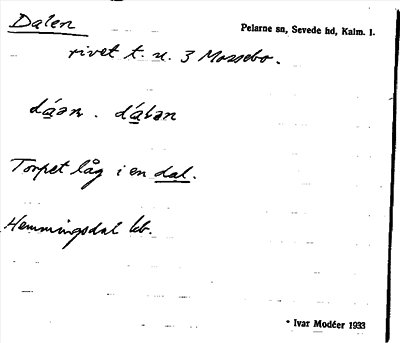 Dalen
Pelarne sn, Sevede hd, Kalm. l.
rivet t. u. 3 Mossebo.
dáən. dálən
Torpet låg i en dal.
Hemmingsdal kb.
* Ivar Modéer 1933